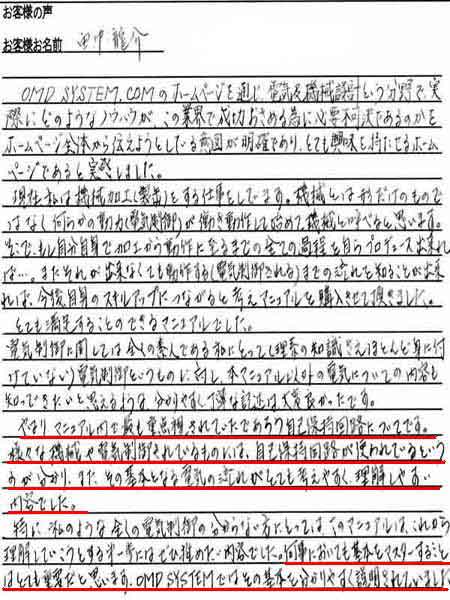 お客様の声
お客様お名前 田中龍介
OMD SYSTEM.COMのホームページを通じ、電気及機械設計という分野で実
際にどのようなノウハウが、この業界で成功おさめる為に必要不可決であるのかを
ホームページ全体から伝えようとしている意図が明確であり、とても興味を持たせるホーム
ページであると実感しました。
現在私は機械加工(製造)をする仕事をしています。機械とは形だけのもので
はなく何らかの動力(電気制御)が働き動作して始めて機械と呼べると思います。
そこで、もし自分自身で加工から動作に至るまでの全ての過程を自らプロデュース出来れ
ば…。またそれが出来なくても動作する(電気制御される)までの流れを知ることが出来
れば、今後自身のスキルアップにつながると考えマニュアルを購入させて頂きました。
とても満足することのできるマニュアルでした。
電気制御に関しては全くの素人である私にとって(理系の知識さえほとんど身に付
けていない)電気制御というものに対し、本マニュアル以外の電気についての内容も
知ってできたいと思えるような、分かりやすく丁寧な記述は大変良かったです。
やはりマニュアル内で最も重点視されていたであろう自己保持回路についてです。
様々な機械や電気制御されているものには、自己保持回路が使われているという
事が分かり、また、その基本となる電気の流れがとても考えやすく、理解しやすい
内容でした。
特に、私のような全くの電気制御の分からない方にとってはこのマニュアルは、これから
理解していこうとする第一歩にはぜひ推めたい内容でした。何事においても基本をマスターすること
はとても重要だと思います。OMD SYSTEMではその基本を分かりやすく説明されていました